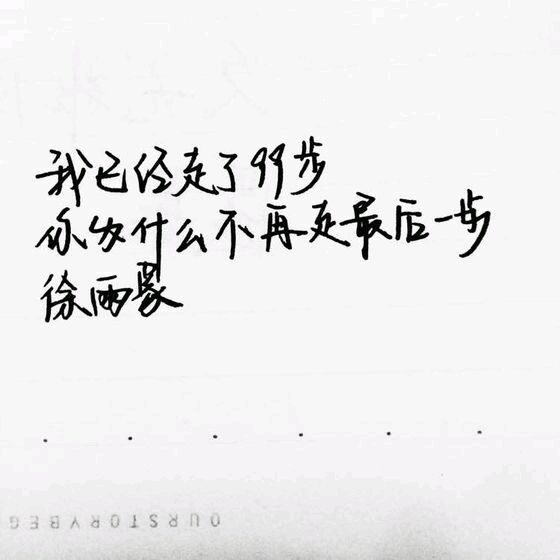 我已经走了99步
你为什么不再走最后一步
徐雨
OURSTORYBEG